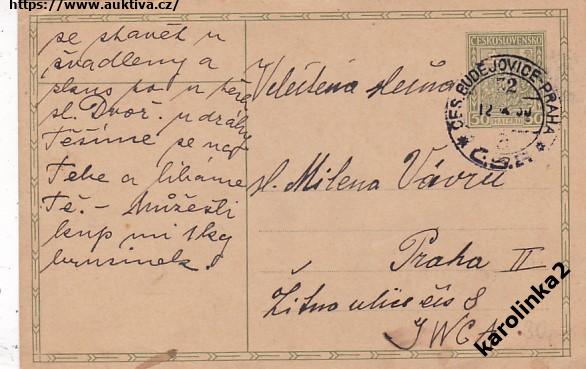 https://www.auktiva.cz/
se stavět u
švadleny a
u
sl. Dvoř. u dráhy
Těšíme se na
Tebe a líbáme
Tě. - Můžeš-li
kup mi 1 kg
brusinek.
ČESKOSLOVENSKO
50 HALÉŘŮ 50
ČES. BUDĚJOVICE-PRAHA
Č.S.R.
Velectěná slečna
sl. Milena Vávrů
Praha II
Žitna ulice čís 8
YWCA.
karolinka2